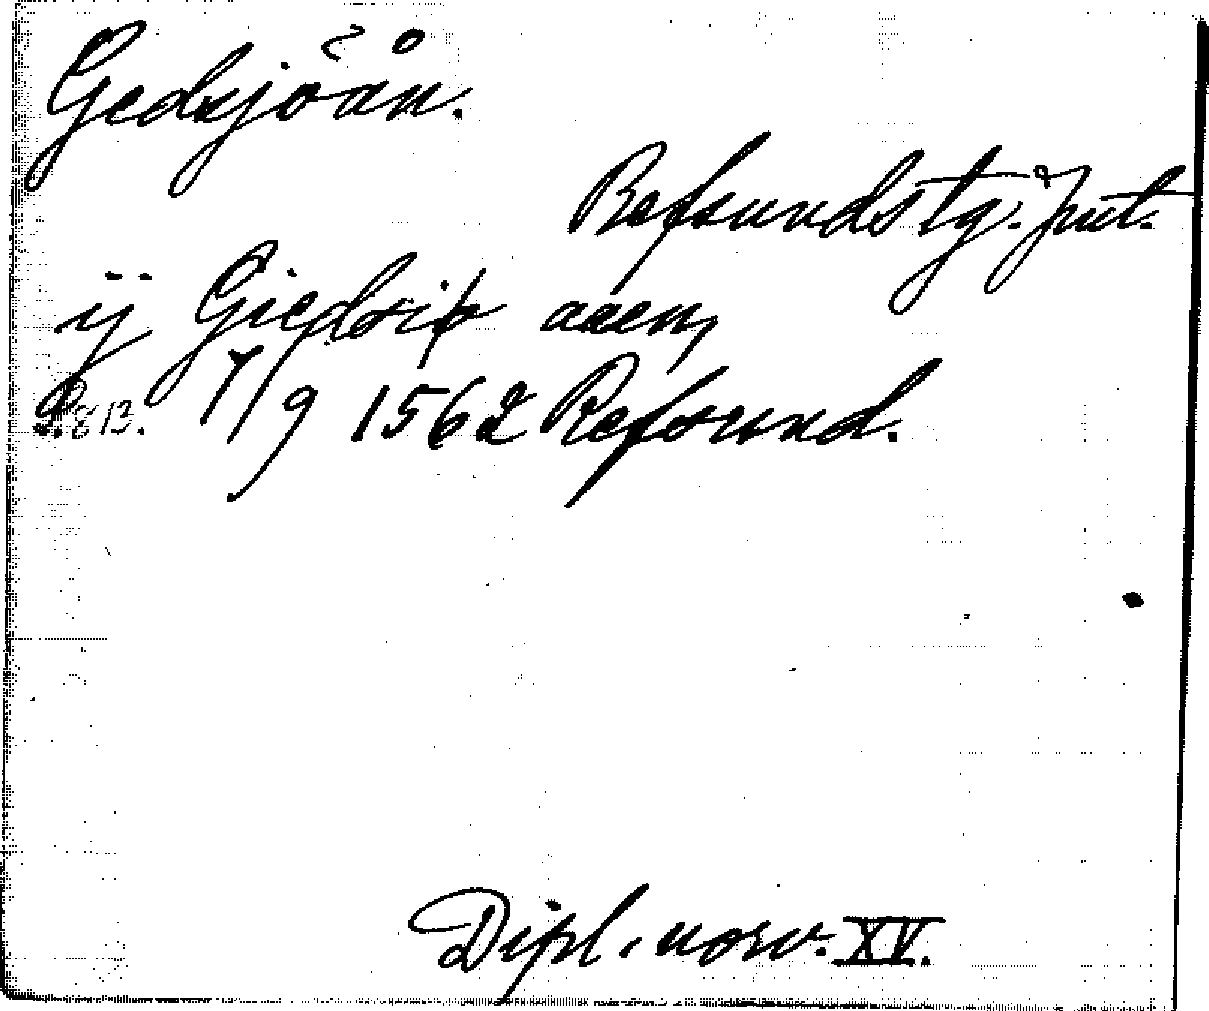 Gedsjöån.
Refsunds tg. Jmt.
ij Giedsiø aaen,
S. 813. 7/9 1562 Refsund.
Dipl. norv. XV.